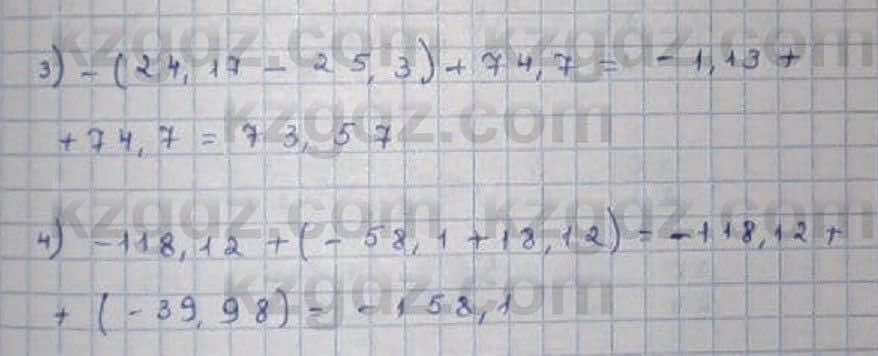 kzgdz.com kzgdz.com
3) - (24,17 - 25,3) + 74,7 = -1,13 +
+ 74,7 = 73,57
kzgdz.com
kzgdz.com kzgdz.com
4) -118,12 + (-58,1 + 18,12) = -118,12 +
+ (-39,98) = -158,1
kzgdz.com